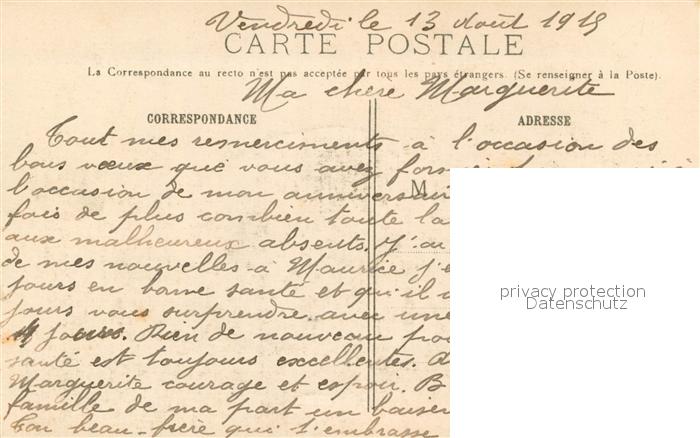 Vendredi le 13 Août 1915
CARTE POSTALE
La Correspondance au recto n'est pas acceptée par tous les pays étrangers. (Se renseigner à la Poste).
Ma chère Marguerite
CORRESPONDANCE
ADRESSE
Tout mes remerciments à l'occasion des
bons vœux que vous avez
l'occasion de mon anniversair
M
fois de plus combien toute la
aux malheureux absents. J'au
de mes nouvelles à Maurice j'e
jours en bonne santé et qu'il
jours vous surprendre avec une
4 jours. Rien de nouveau pou
santé est toujours excellentes.
Marguerite courage et espoir. B
famille de ma part un baiser
Ton beau-frère qui t'embrasse
privacy protection
Datenschutz